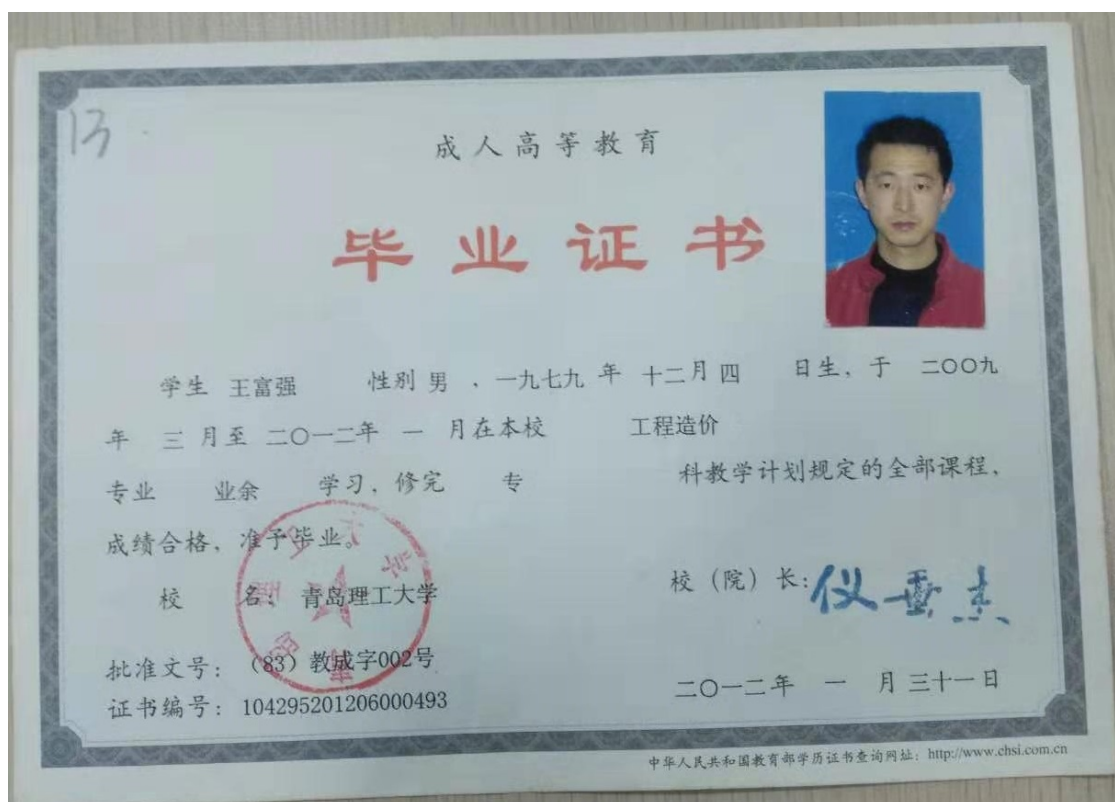 13
成人高等教育
毕业证书
学生 王富强 性别 男 、一九七九 年 十二月 四 日生，于 二〇〇九
年 三 月至 二〇一二年 一 月在本校 工程造价
专业 业余 学习，修完 专 科教学计划规定的全部课程，
成绩合格，准予毕业。
校 名： 青岛理工大学
校（院）长：仪垂杰
批准文号：（83）教成字002号
证书编号：104295201206000493
二〇一二年 一 月 三十一 日
中华人民共和国教育部学历证书查询网址：http://www.chsi.com.cn